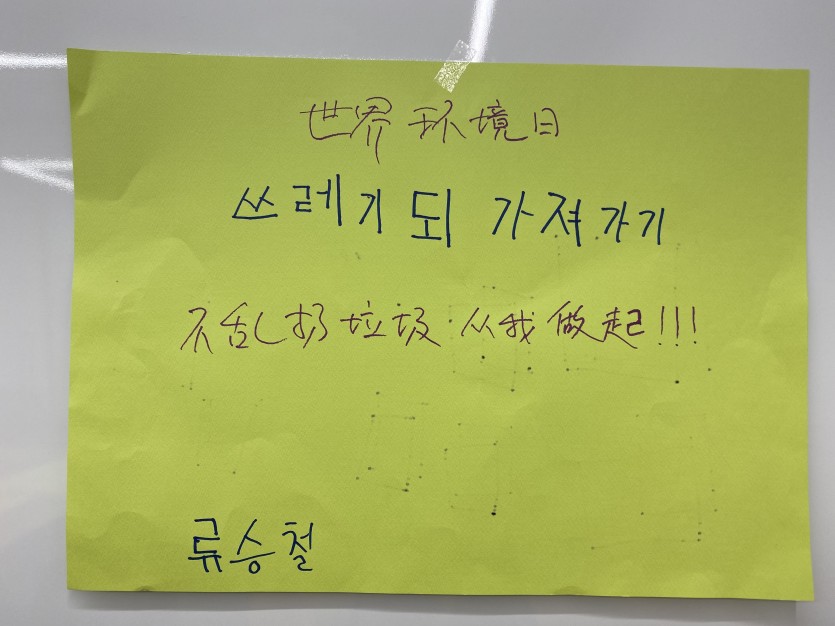 世界环境日
쓰레기 되 가져가기
不乱扔垃圾 从我做起!!!
류승철